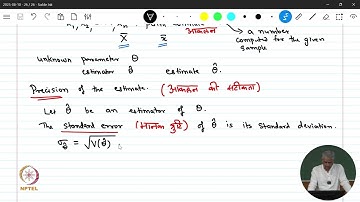 2025-08-10 - 26 / 26 - Stable Int
→ a number
आकलन
X̄ x̄ computed for the given
sample
unknown parameter θ
estimator θ̂ estimate θ̂.
Precision of the estimate. (आकलन की सटीकता)
Let θ̂ be an estimator of θ.
The standard error (मानक त्रुटि) of θ̂ is its standard deviation.
σ_θ̂ = √V(θ̂)
NPTEL